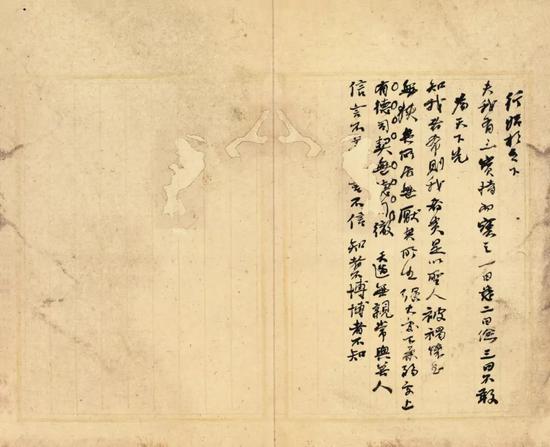 行始於足下
夫我有三寶持而寶之一曰慈二曰儉三曰不敢
為天下先
知我者希則我者貴是以聖人被褐懷玉
無狹其所居無厭其所生强大處下柔弱處上
有德司契無德司徹 天道無親常與善人
信言不 言不信 知者不博博者不知